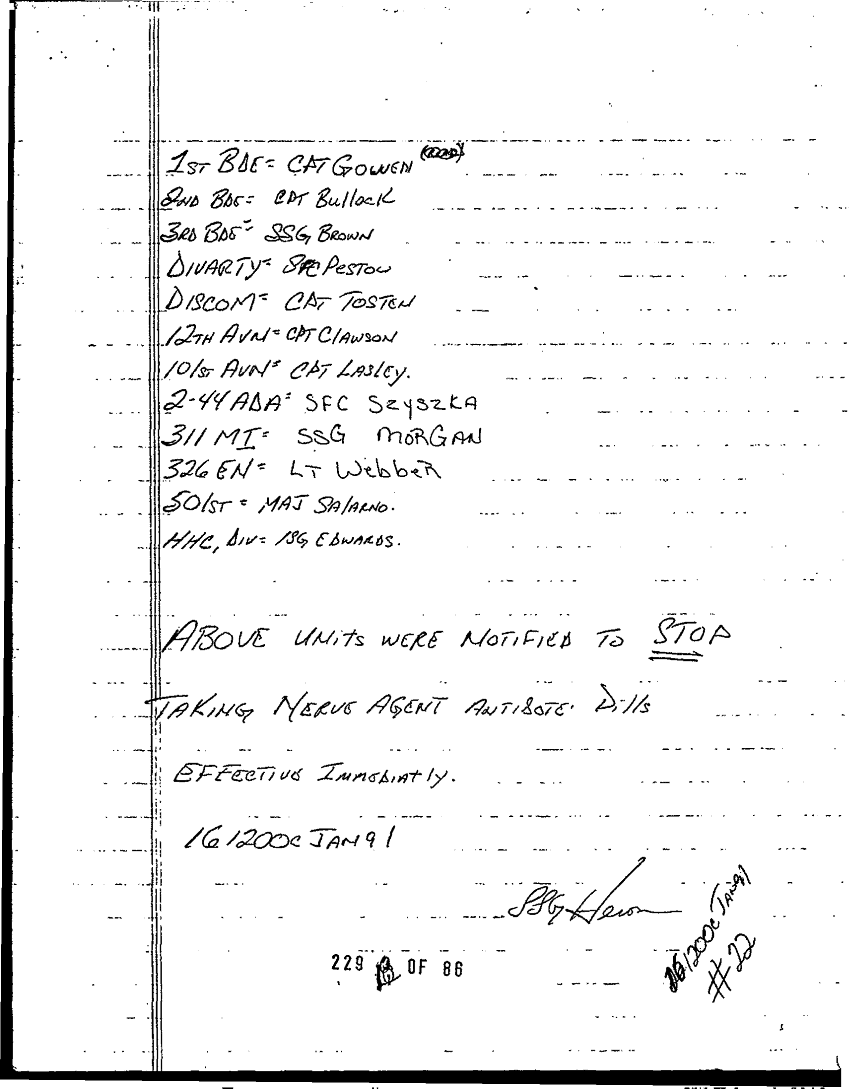 1ST BDE = CAT GOWEN
2ND BDE = CPT Bullock
3RD BDE = SSG BROWN
DIVARTY = SFC PESTOW
DISCOM = CAT TOSTEN
12TH AVN = CPT Clawson
101ST AVN = CPT LASLEY.
2-44 ADA = SFC SZYSZKA
311 MI = SSG MORGAN
326 EN = LT WebbeR
501ST = MAJ SALARNO.
HHC, DIV = 1SG EDWARDS.
ABOVE UNITS WERE NOTIFIED TO STOP
TAKING NERVE AGENT ANTIDOTE Pills
EFFECTIVE IMMEDIATLY.
161200C JAN 91
SSG
161200C JAN 91
#22
229 OF 86